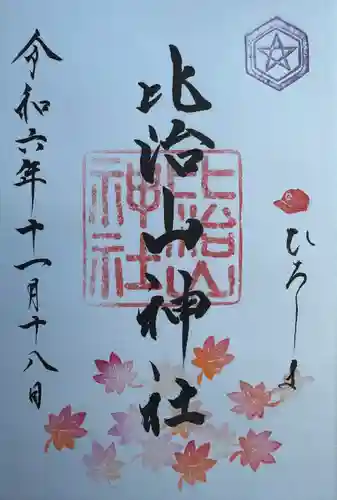 ひろしま
比治山神社
比治山神社
令和六年十一月十八日